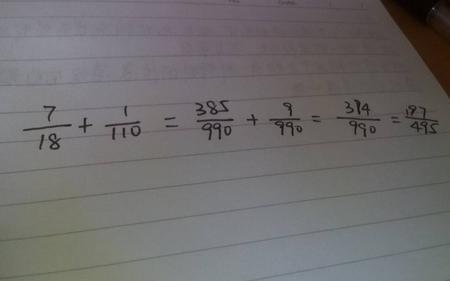 7/18 + 1/110 = 385/990 + 9/990 = 394/990 = 197/495